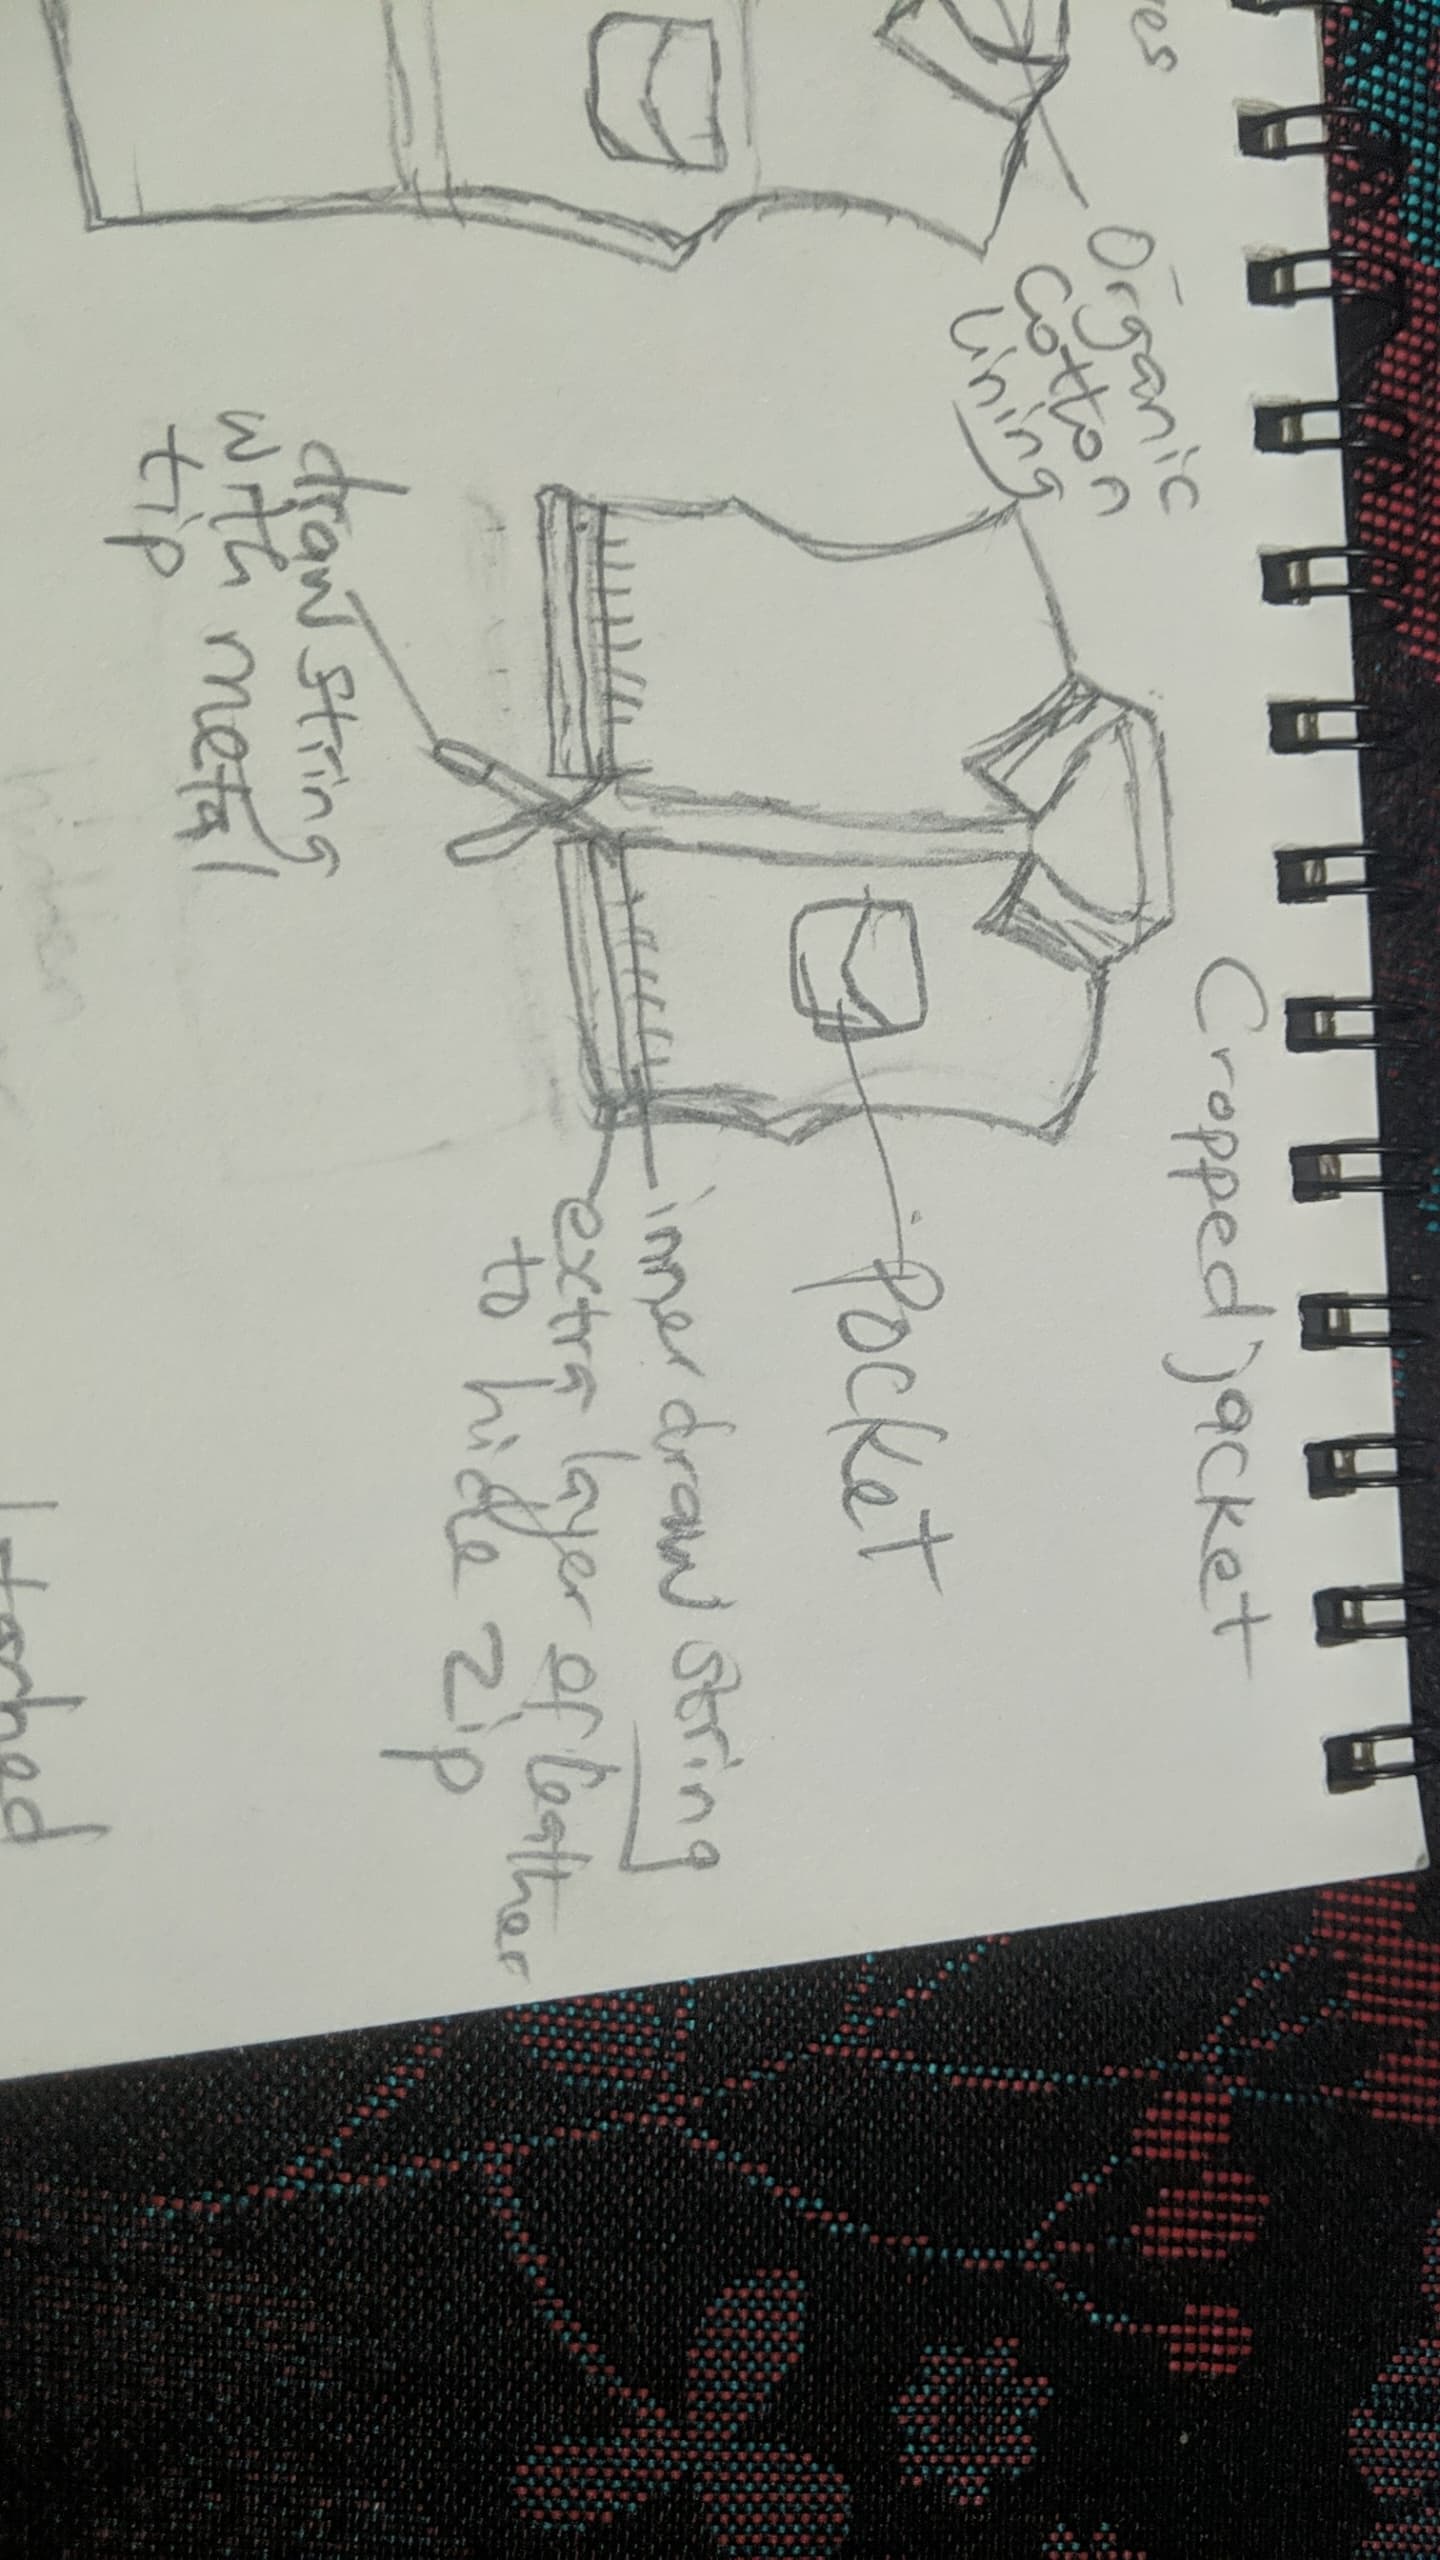 Cropped jacket
Organic
Cotton
Lining
Pocket
inner draw string
extra layer of leather
to hide zip
draw string
with metal
tip